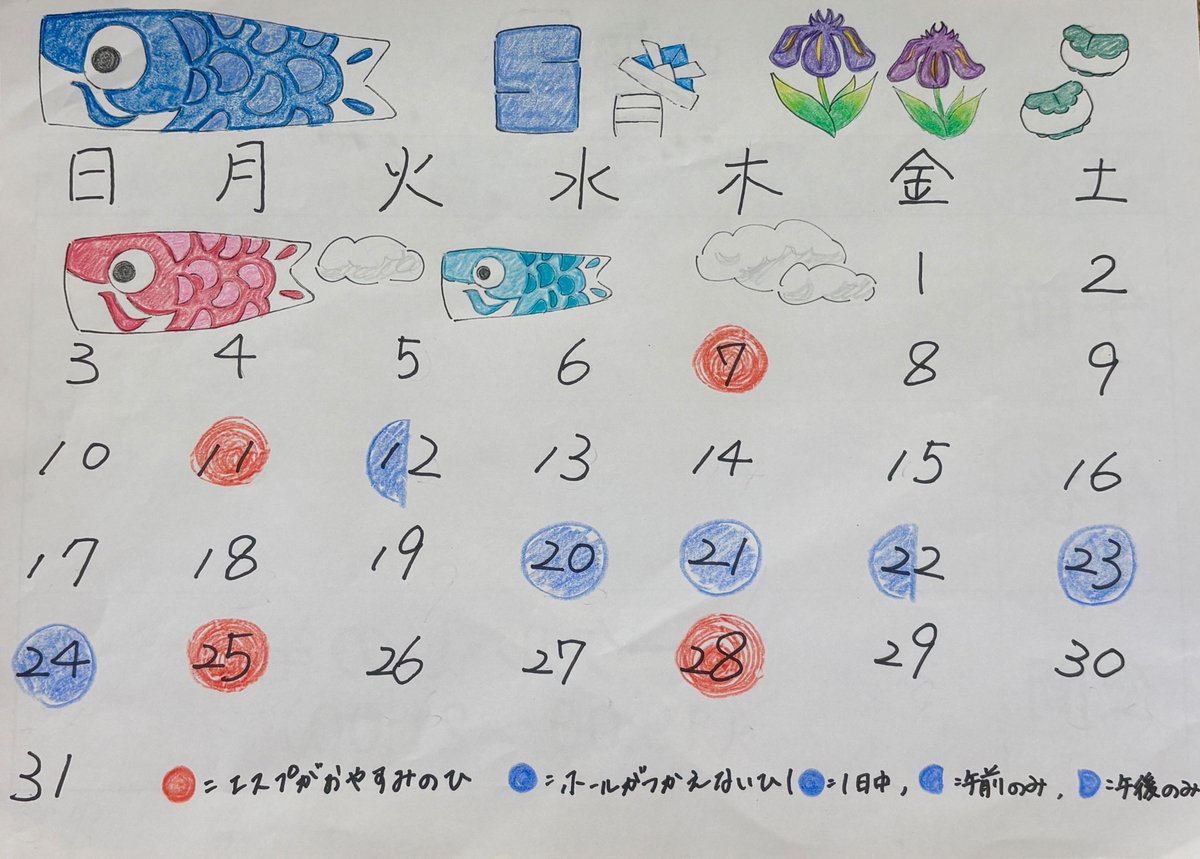 5月
日 月 火 水 木 金 土
1 2
3 4 5 6 7 8 9
10 11 12 13 14 15 16
17 18 19 20 21 22 23
24 25 26 27 28 29 30
31
=エスプがおやすみのひ =ホールがつかえないひ( =1日中, =午前のみ, =午後のみ